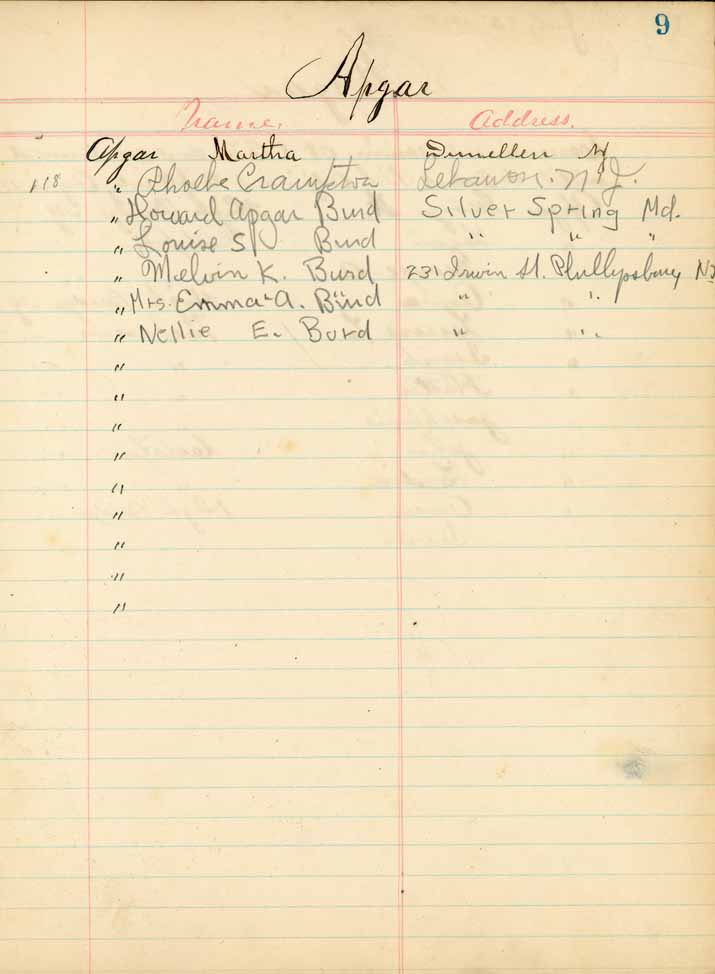 9
Apgar
Name. Address.
Apgar Martha Dunellen NJ
118 " Phoebe Crampton Lebanon. N.J.
" Howard Apgar Burd Silver Spring Md.
" Louise S. Burd " " "
" Melvin K. Burd 231 Irwin St. Phullypsburg NJ
" Mrs. Emma A. Burd " "
" Nellie E. Burd " "
"
"
"
"
"
"
"
"
"